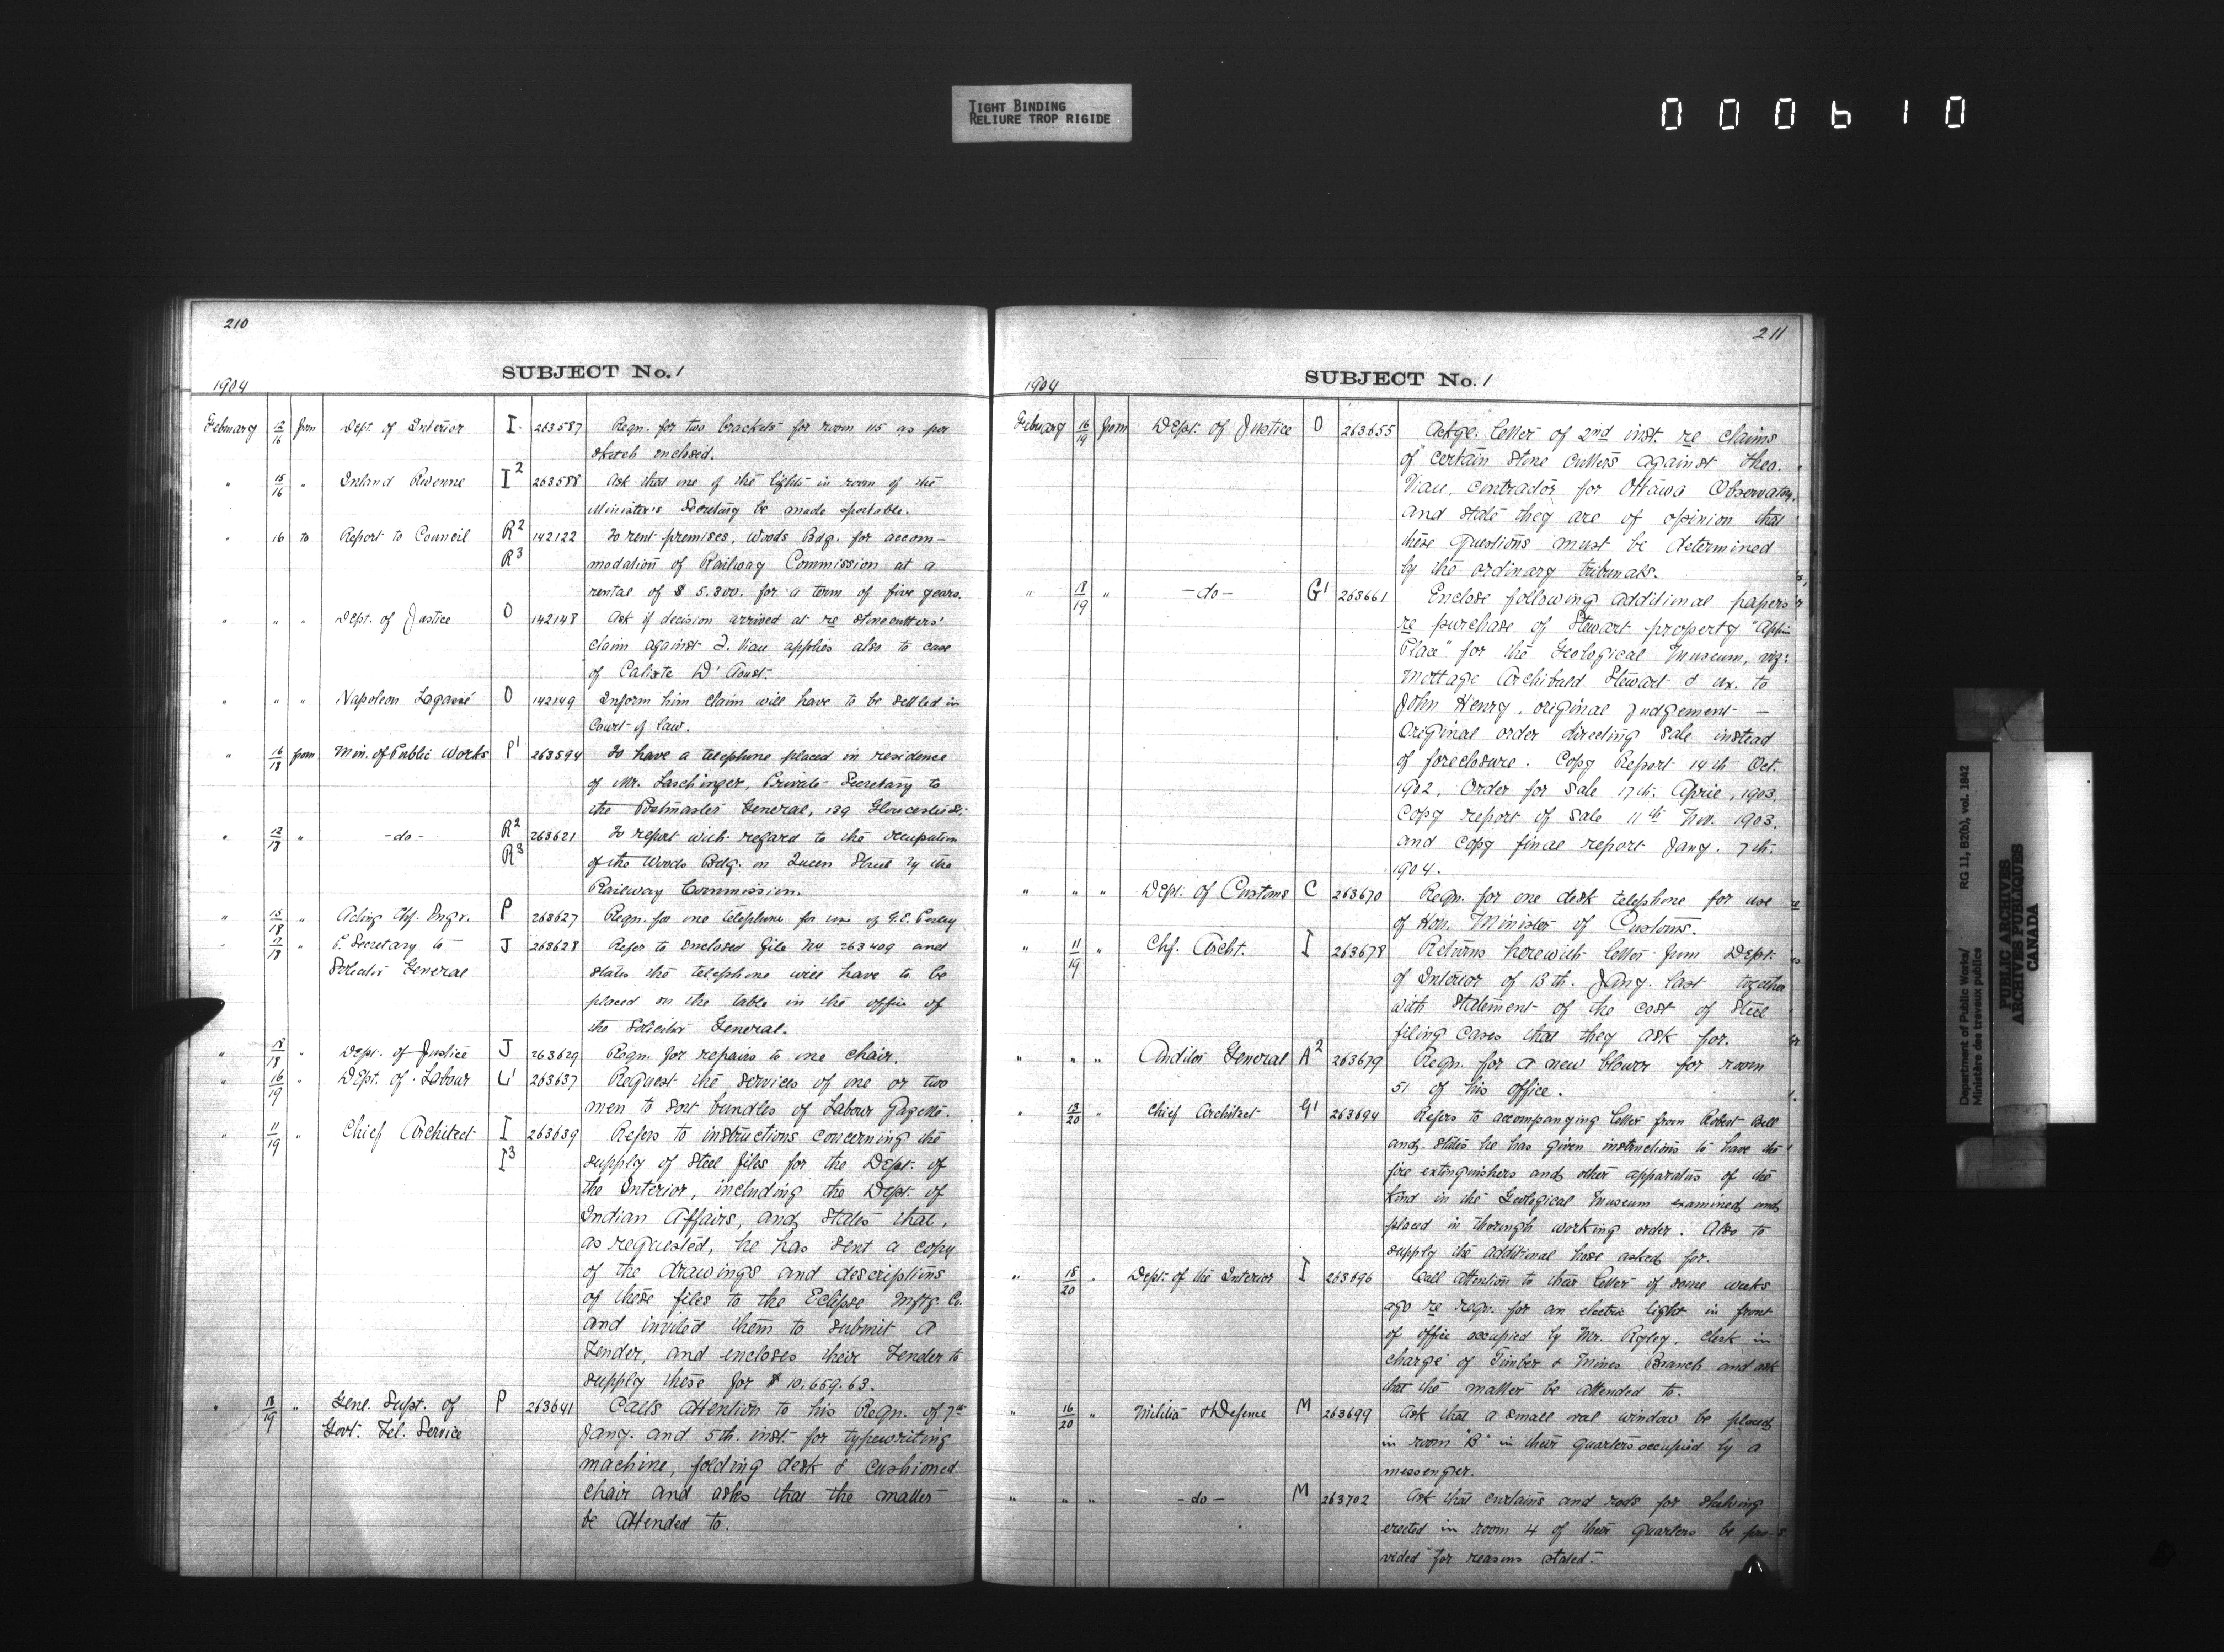 TIGHT BINDING
RELIURE TROP RIGIDE
000610
210
SUBJECT No. 1
1904
February 12/16 from Dept. of Interior I 263587 Reqn. for two brackets for room 115 as per
sketch enclosed.
" 15/16 " Inland Revenue I2 263588 Ask that one of the lights in room of the
Minister's Secretary be made portable.
" 16 to Report to Council R2 142122 To rent premises, Woods Bdg. for accom-
R3 modation of Railway Commission at a
rental of $ 5.300. for a term of five years.
" " " Dept. of Justice O 142148 Ask if decision arrived at re stonecutters'
claim against T. Viau applies also to case
of Calixte D'Aoust.
" " " Napoleon Lagassé O 142149 Inform him claim will have to be settled in
Court of law.
" 16/18 from Min. of Public Works P1 263594 To have a telephone placed in residence
of Mr. Laschinger, Private Secretary to
the Postmaster General, 139 Gloucester St.
" 12/18 " -do- R2 263621 To report with regard to the occupation
R3 of the Woods Bldg. on Queen Street by the
Railway Commission.
" 15/18 " Acting Chf. Engr. P 263627 Reqn. for one telephone for use of G.E. Perley
" 17/18 " P. Secretary to J 263628 Refers to enclosed file No 263409 and
Solicitor General states the telephone will have to be
placed on the table in the office of
the Solicitor General.
" 18/18 " Dept. of Justice J 263629 Reqn. for repairs to one chair.
" 16/19 " Dept. of Labour L1 263637 Request the services of one or two
men to sort bundles of Labour Gazette.
" 11/19 " Chief Architect I 263639 Refers to instructions concerning the
I3 supply of steel files for the Dept. of
the Interior, including the Dept. of
Indian Affairs, and states that,
as requested, he has sent a copy
of the drawings and descriptions
of these files to the Eclipse Mftg. Co.
and invited them to submit a
Tender, and encloses their Tender to
supply these for $ 10,659.63.
" 18/19 " Genl. Supt. of P 263641 Calls attention to his Reqn. of 7th
Govt. Tel. Service Jany. and 5th. inst. for typewriting
machine, folding desk & cushioned
chair and asks that the matter
be attended to.
211
SUBJECT No. 1
1904
February 16/19 from Dept. of Justice O 263655 Ackge. letter of 2nd inst. re claims
of certain stone cutters against Theo.
Viau, contractor for Ottawa Observatory,
and state they are of opinion that
these questions must be determined
by the ordinary tribunals.
" 18/19 " -do- G1 263661 Enclose following additional papers
re purchase of Stewart property "Appin
Place" for the Geological Museum, viz:
Mortgage Archibald Stewart & ux. to
John Henry, original Judgement -
Original order directing sale instead
of foreclosure. Copy Report 14th Oct.
1902, Order for Sale 17th. April, 1903,
Copy report of sale 11th Nov. 1903,
and copy final report Jany. 7th.
1904.
" " " Dept. of Customs C 263670 Reqn. for one desk telephone for use
of Hon. Minister of Customs.
" 11/19 " Chf. Archt. I 263678 Returns herewith letter from Dept.
of Interior of 13th. Jany. last together
with statement of the cost of steel
filing cases that they ask for.
" " " Auditor General A2 263679 Reqn. for a new blower for room
51 of his office.
" 13/20 " Chief Architect G1 263694 Refers to accompanying letter from Robert Bell
and states he has given instructions to have the
fire extinguishers and other apparatus of the
kind in the Geological Museum examined and
placed in thorough working order. Also to
supply the additional hose asked for.
" 18/20 " Dept. of the Interior I 263696 Call attention to their letter of some weeks
ago re reqn. for an electric light in front
of office occupied by Mr. Ryley, clerk in
charge of Timber & Mines Branch and ask
that the matter be attended to.
" 16/20 " Militia & Defense M 263699 Ask that a small oval window be placed
in room "B" in their quarters occupied by a
messenger.
" " " -do- M 263702 Ask that curtains and rods for shelving
erected in room 4 of their quarters be pro-
vided for reasons stated.
Department of Public Works/ RG 11, B2(b), vol. 1842
Ministère des travaux publics
PUBLIC ARCHIVES
ARCHIVES PUBLIQUES
CANADA